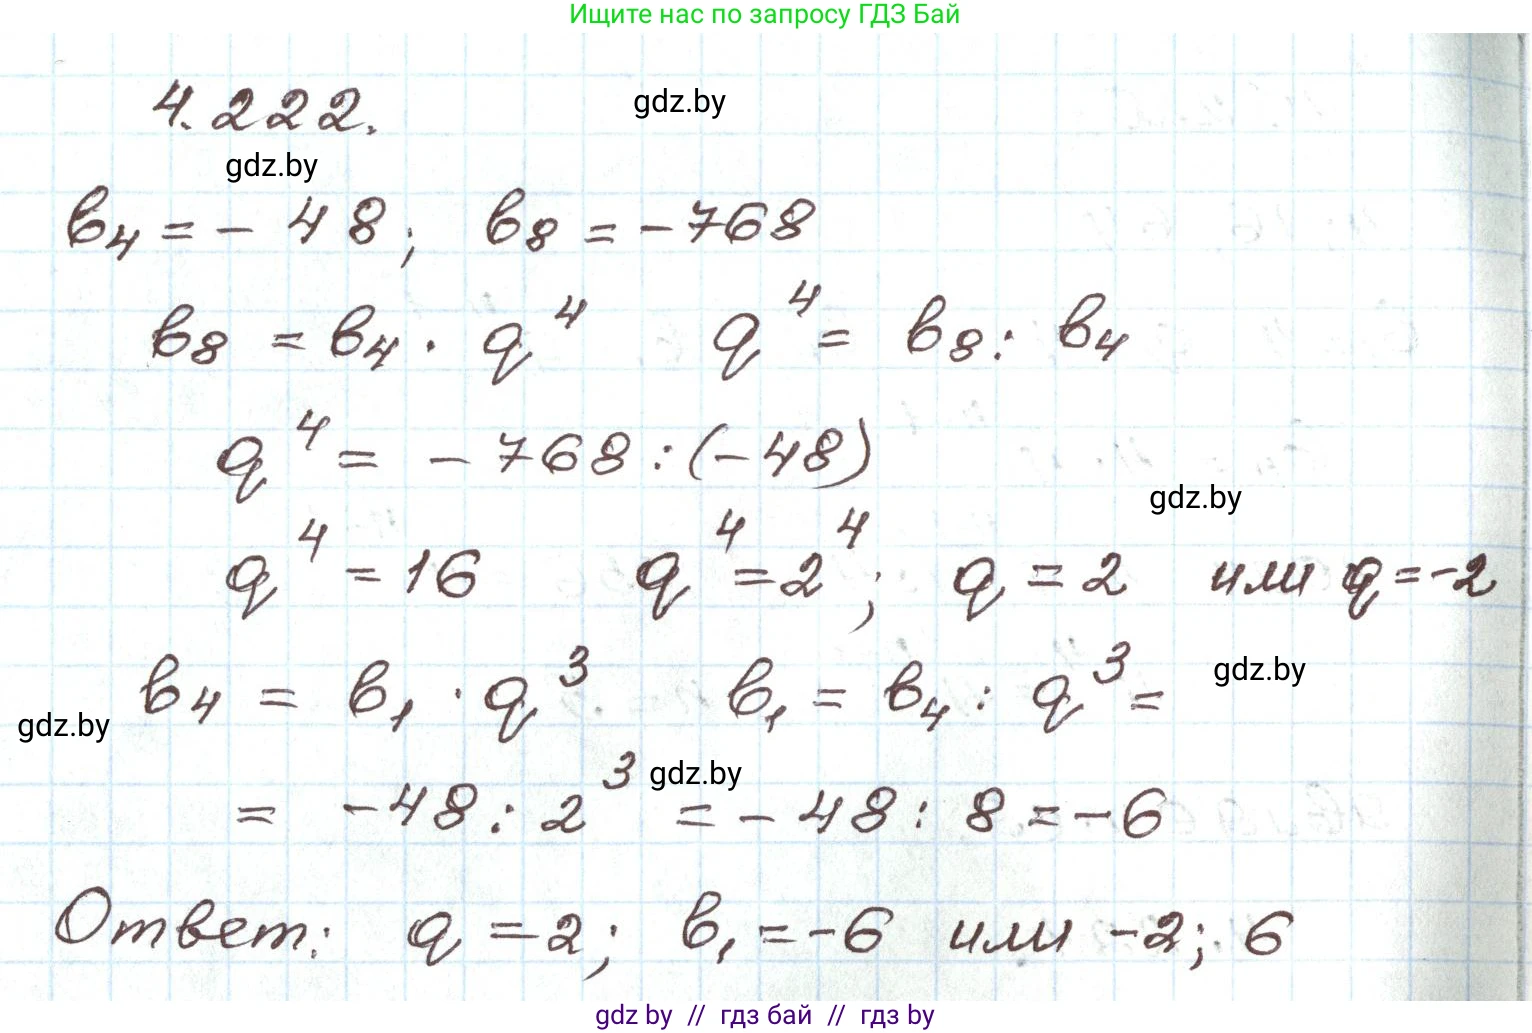 Ищите нас по запросу ГДЗ Бай
4.222.
gdz.by
gdz.by
в₄ = - 48; в₈ = -768
в₈ = в₄ · q⁴ q⁴ = в₈ : в₄
q⁴ = - 768 : (-48)
gdz.by
q⁴ = 16 q⁴ = 2⁴; q = 2 или q = -2
в₄ = в₁ · q³ в₁ = в₄ : q³ =
gdz.by
gdz.by
gdz.by
= -48 : 2³ = - 48 : 8 = -6
Ответ: q = 2; в₁ = -6 или -2; 6
gdz by // гдз бай // гдз by